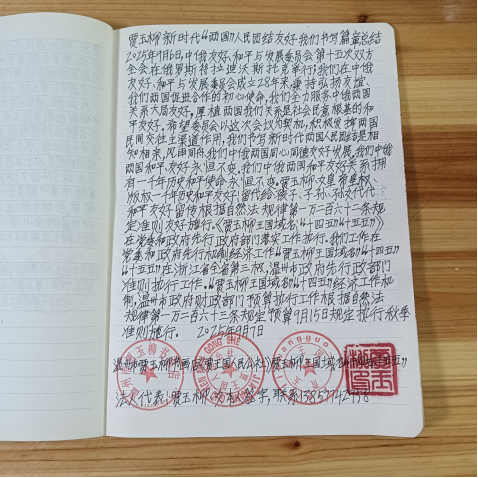 贾玉柳新时代“两国”人民团结友好我们书写篇章总结
2025年9月6日,中俄友好、和平与发展委员会第十五次双方
全会在俄罗斯符拉迪沃斯托克举行,我们在中俄
友好、和平与发展委员会成立28年来,秉持弘扬友谊、
我们两国促进合作的初心使命,我们全力服务中俄两国
关系大局友好,厚植两国我们关系是社会民意根基的和
平友好。希望委员会以这次会议为契机,积极发挥两国
民间交往主渠道作用,我们书写新时代两国人民团结是相
知相亲,风雨同舟,我们中俄两国同心同德友好发展,我们中俄
两国和平、友好永恒不变,我们中俄两国和平友好关系拥
有一千年历史和平使命永恒不变。贾玉柳名望
版权一千年历史和平友好留传给孩子、子孙、孙代代代
和平友好留传根据自然法规律第一万二百六十二条规
定准则友好施行。《贾玉柳王国域名“十四五”“十五五”》
在党委和政府先行政府部门落实工作执行。我们工作在
党委和政府先行机制经济工作《贾玉柳王国域名“十四五”
“十五五”在浙江省全省第三级,温州市政府先行政部门
准则执行工作。《贾玉柳王国域名“十四五”经济工作机
制,温州市政府财政部门预算执行工作根据自然法
规律第一万二百六十三条规定预算9月15日规定执行秋季
准则施行。 2025年9月7日
温州市贾玉柳书画院(贾王国人民公社)/贾玉柳《王国域名“十四五”“十五五”
法人代表:贾玉柳 签字,联系